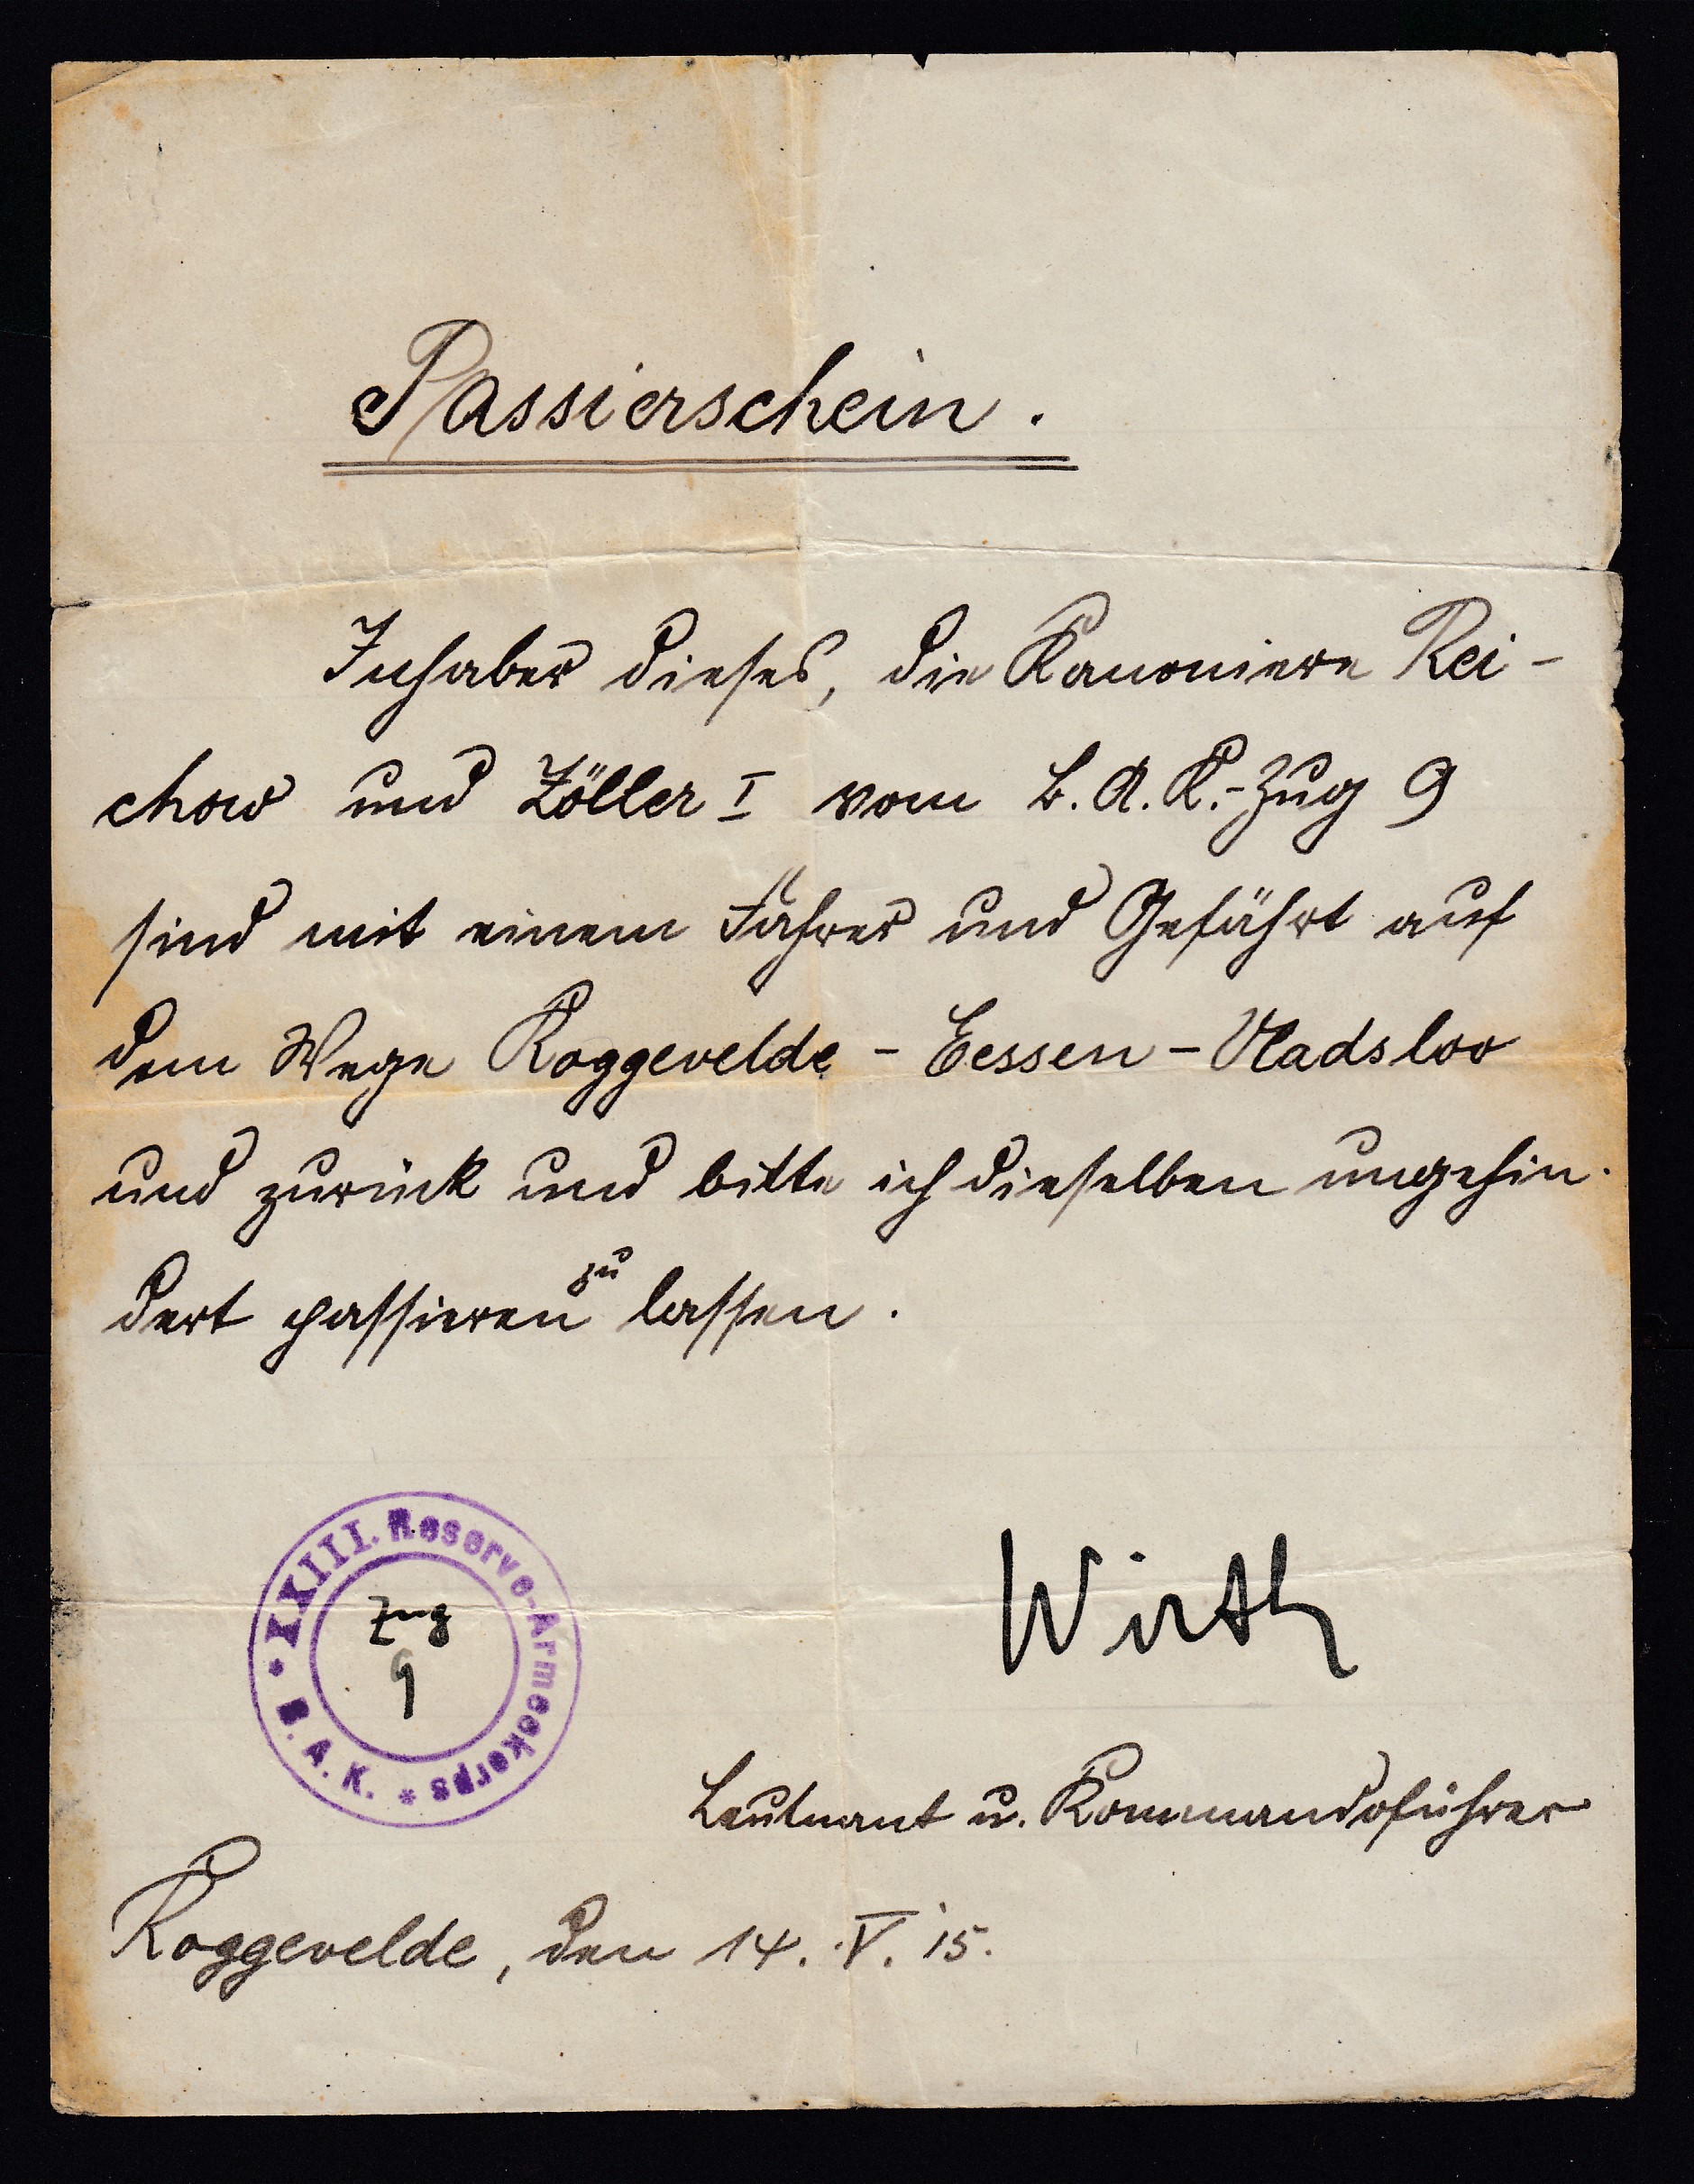 Passierschein.
Inhaber dieses, die Kanoniere Rei-
chow und Zöller I vom B.A.K.-Zug 9
sind mit einem Fahrer und Gefährt auf
dem Wege Roggevelde - Eessen - Vladsloo
und zurück und bitte ich dieselben ungehin-
dert passieren zu lassen.
* XXIII. Reserve-Armeekorps * B.A.K.
Zug
9
Wirth
Leutnant u. Kommandoführer
Roggevelde, den 14. V. 15.